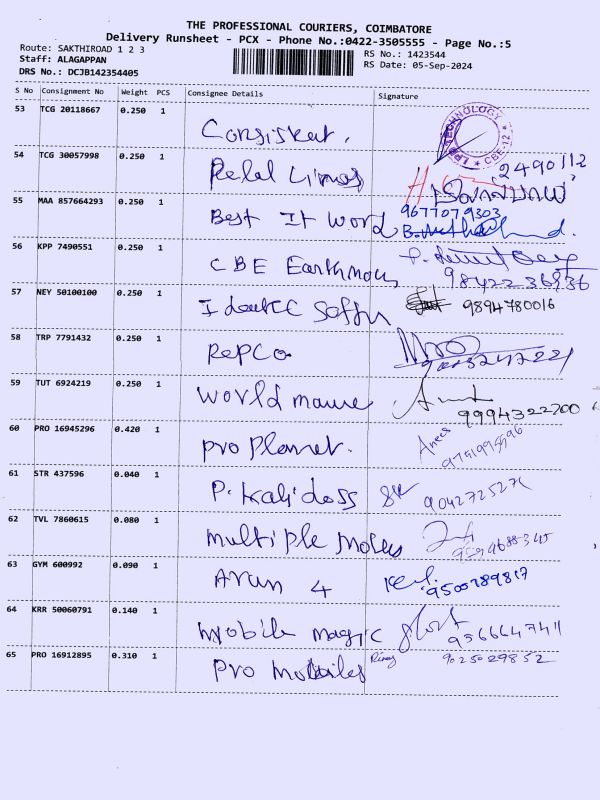 THE PROFESSIONAL COURIERS, COIMBATORE
Delivery Runsheet - PCX - Phone No.:0422-3505555 - Page No.:5
Route: SAKTHIROAD 1 2 3
RS No.: 1423544
Staff: ALAGAPPAN
RS Date: 05-Sep-2024
DRS No.: DCJB142354405
S No Consignment No Weight PCS Consignee Details Signature
53 TCG 20118667 0.250 1 Consistent. TECHNOLOGY CBE-12
54 TCG 30057998 0.250 1 2490112
55 MAA 857664293 0.250 1 Best It word 9677079303
56 KPP 7490551 0.250 1 CBE 9842236936
57 NEY 50100100 0.250 1 9894780016
58 TRP 7791432 0.250 1 RepCo
59 TUT 6924219 0.250 1 world 9994322700
60 PRO 16945296 0.420 1 pro Planet. Anees
61 STR 437596 0.040 1 P. Kalidoss
62 TVL 7860615 0.080 1 multiple
63 GYM 600992 0.090 1 Arun 4 9500789817
64 KRR 50060791 0.140 1 Mobile magic 9566647411
65 PRO 16912895 0.310 1 pro Mobiles 9025029852